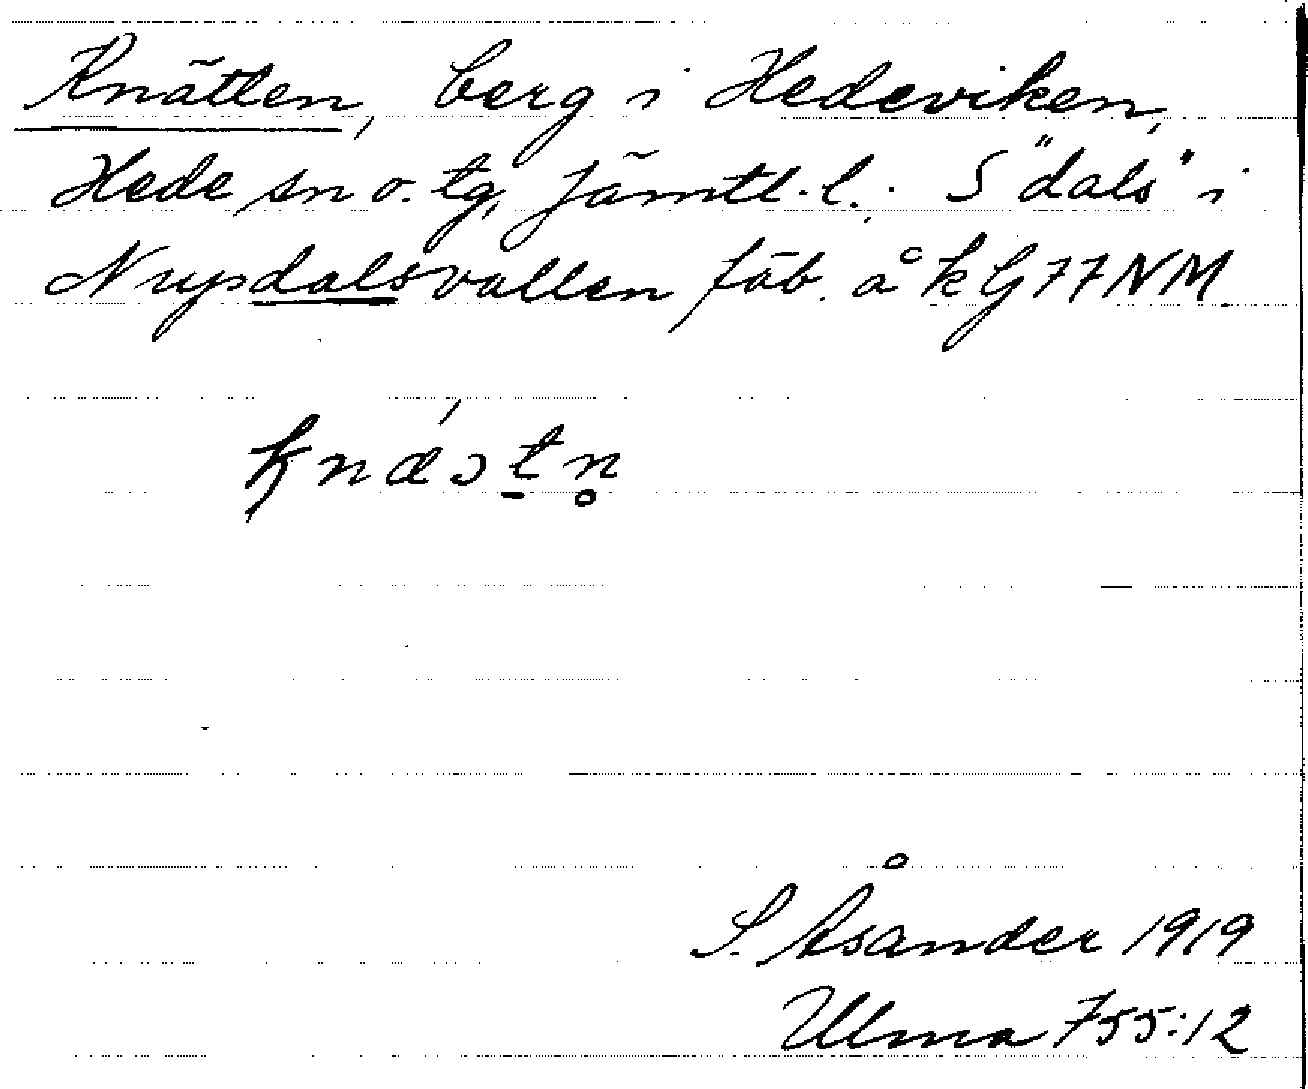 Knätten, berg i Hedeviken,
Hede sn o. tg, Jämtl. l. S "dals" i
Nysdalsvallen fäb. å kG77NM.
S. Åsander 1919
Ulma 755:12